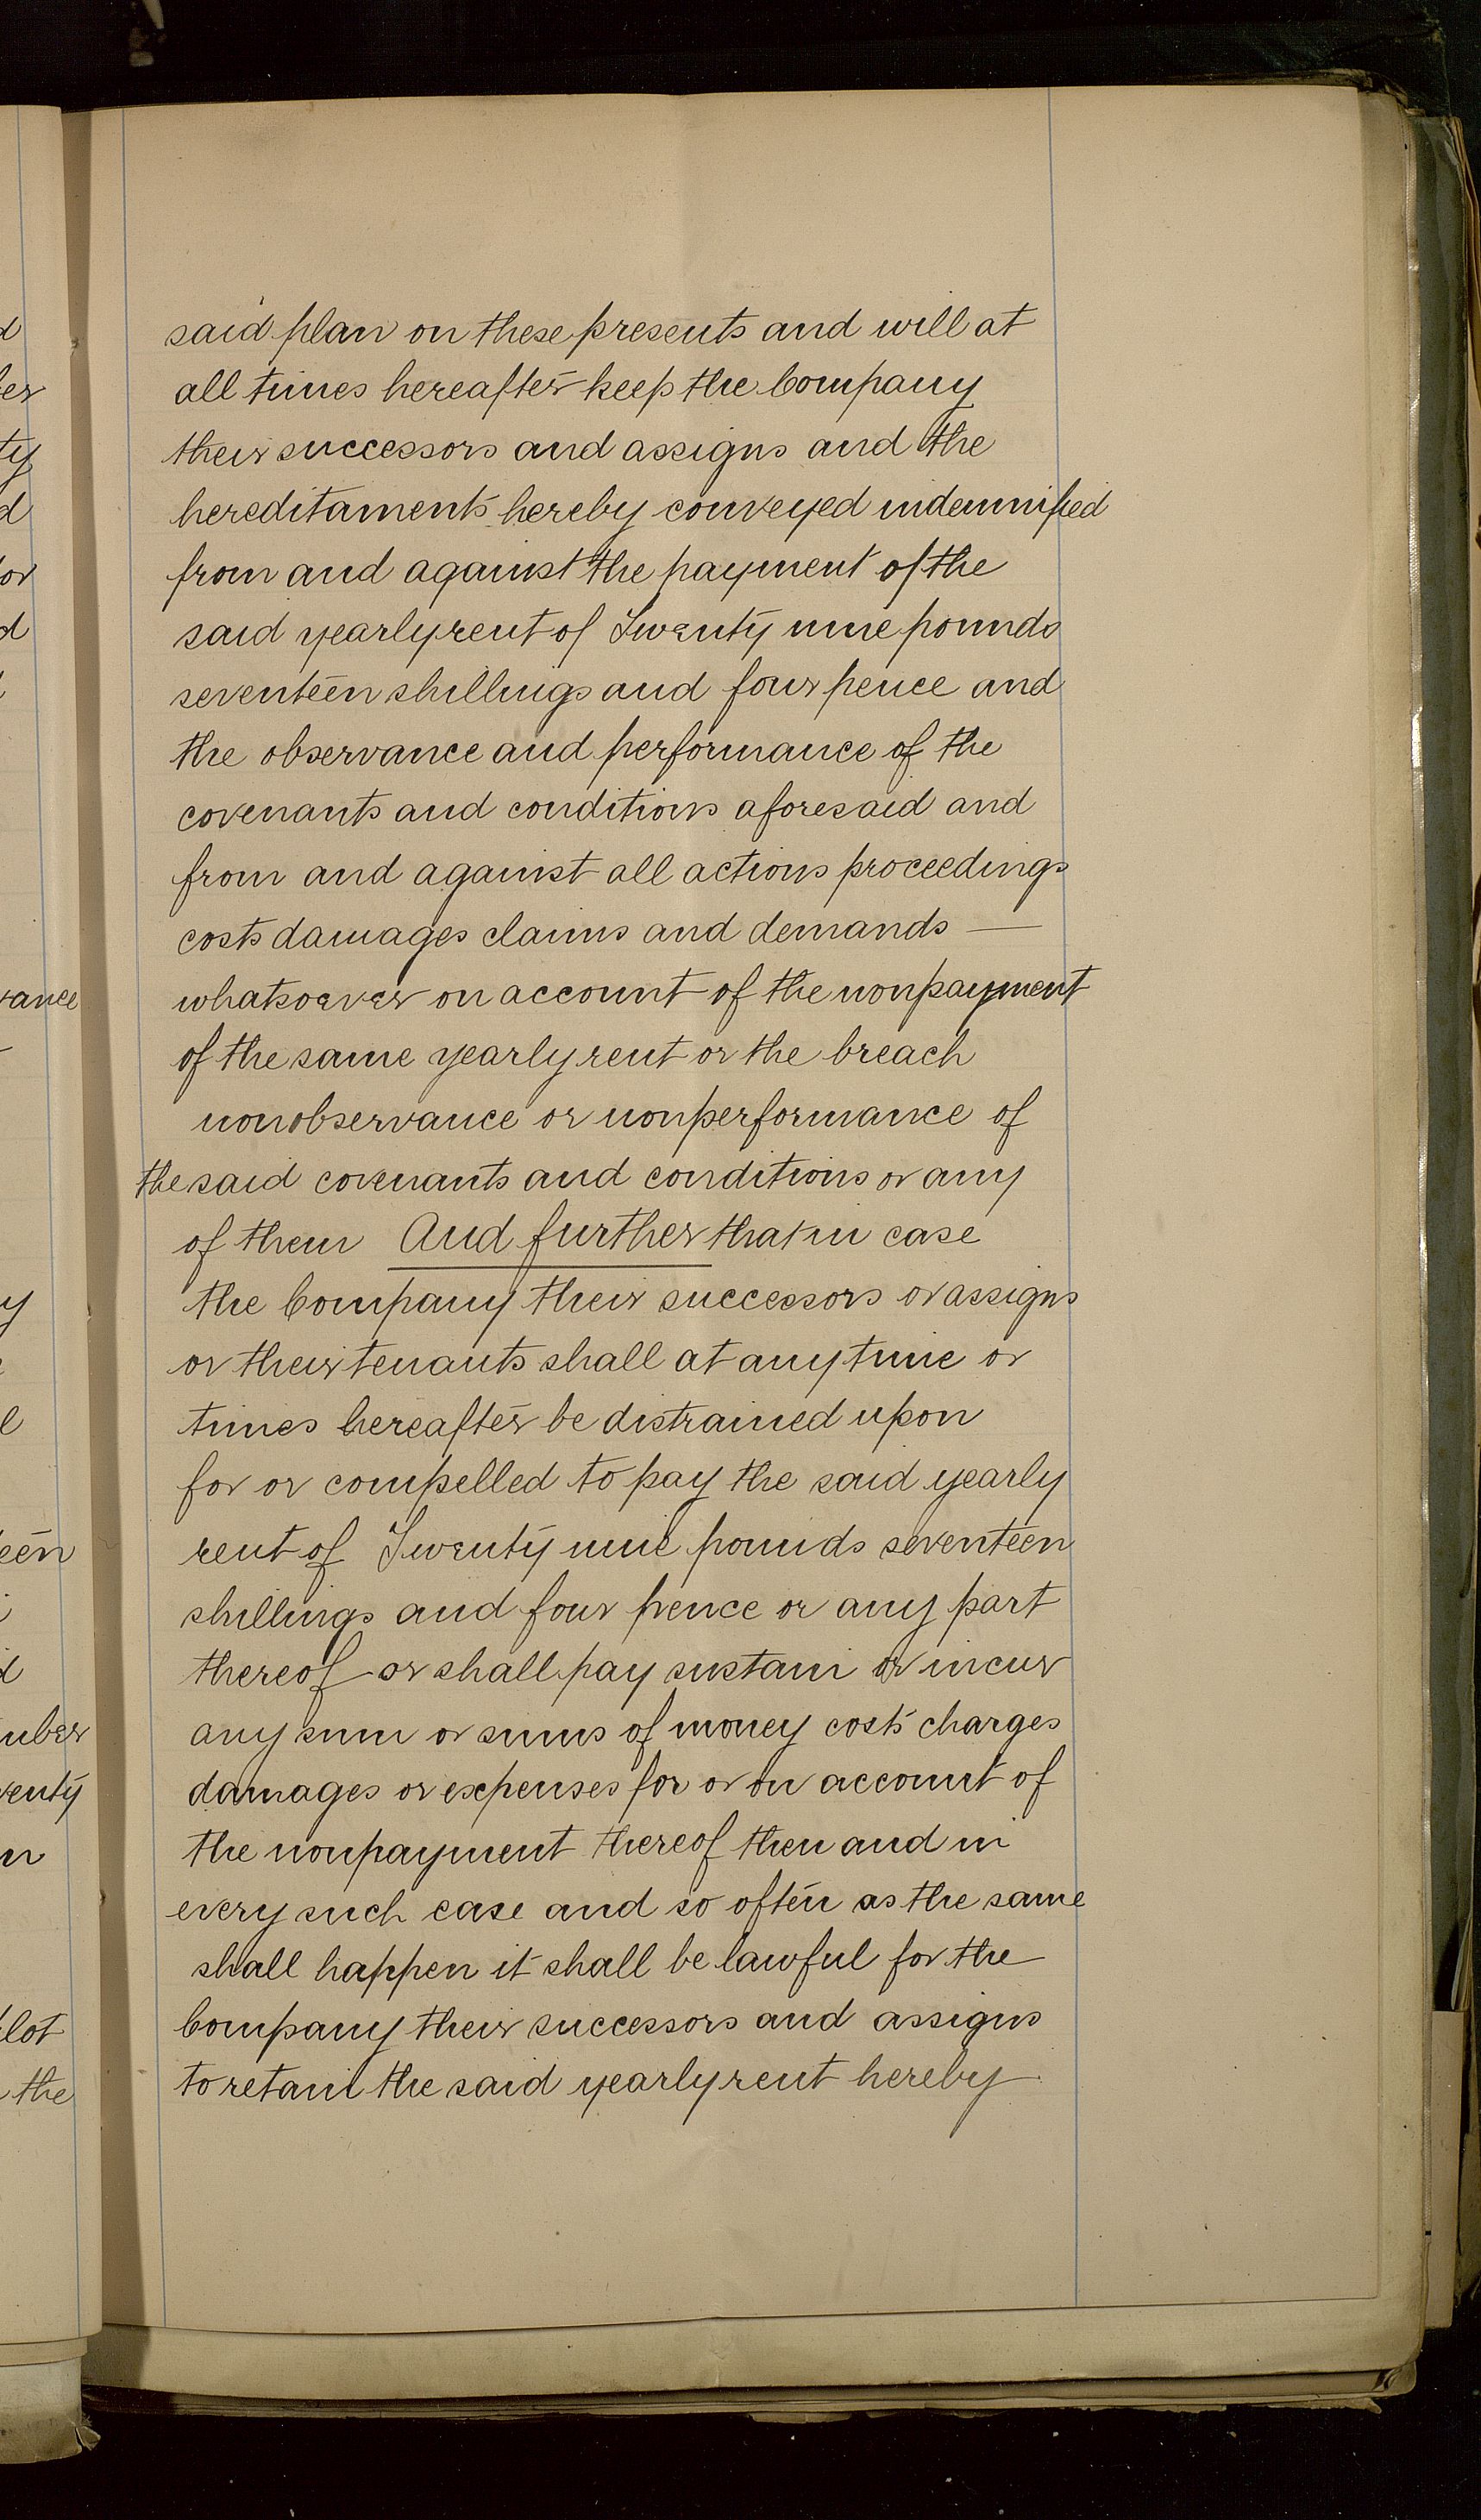 said plan on these presents and will at
all times hereafter keep the Company
their successors and assigns and the
hereditaments hereby conveyed indemnified
from and against the payment of the
said yearly rent of Twenty nine pounds
seventeen shillings and four pence and
the observance and performance of the
covenants and conditions aforesaid and
from and against all actions proceedings
costs damages claims and demands —
whatsoever on account of the nonpayment
of the same yearly rent or the breach
nonobservance or nonperformance of
the said covenants and conditions or any
of them And further that in case
the Company their successors or assigns
or their tenants shall at any time or
times hereafter be distrained upon
for or compelled to pay the said yearly
rent of Twenty nine pounds seventeen
shillings and four pence or any part
thereof or shall pay sustain or incur
any sum or sums of money costs charges
damages or expenses for or on account of
the nonpayment thereof then and in
every such case and so often as the same
shall happen it shall be lawful for the
Company their successors and assigns
to retain the said yearly rent hereby